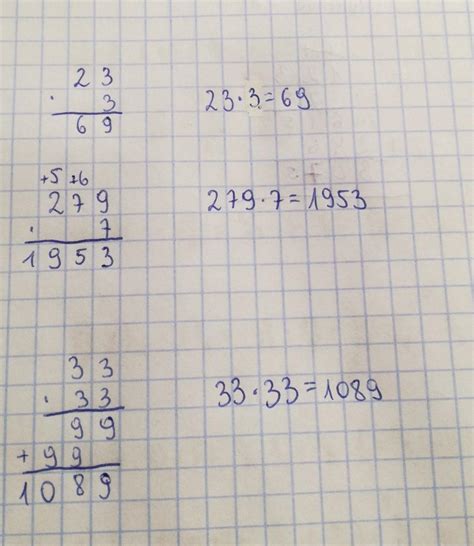 23
· 3
69
23·3=69
+5 +6
279
· 7
1953
279·7=1953
33
· 33
99
+99
1089
33·33=1089